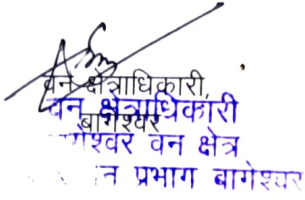 वन क्षेत्राधिकारी,
बागेश्वर
वन क्षेत्राधिकारी
वन क्षेत्र
प्रभाग बागेश्वर